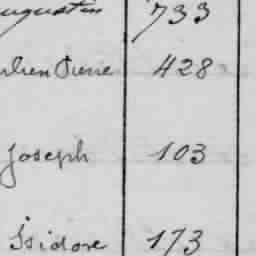 Augustin 733
Pierre 428
Joseph 103
Isidore 173